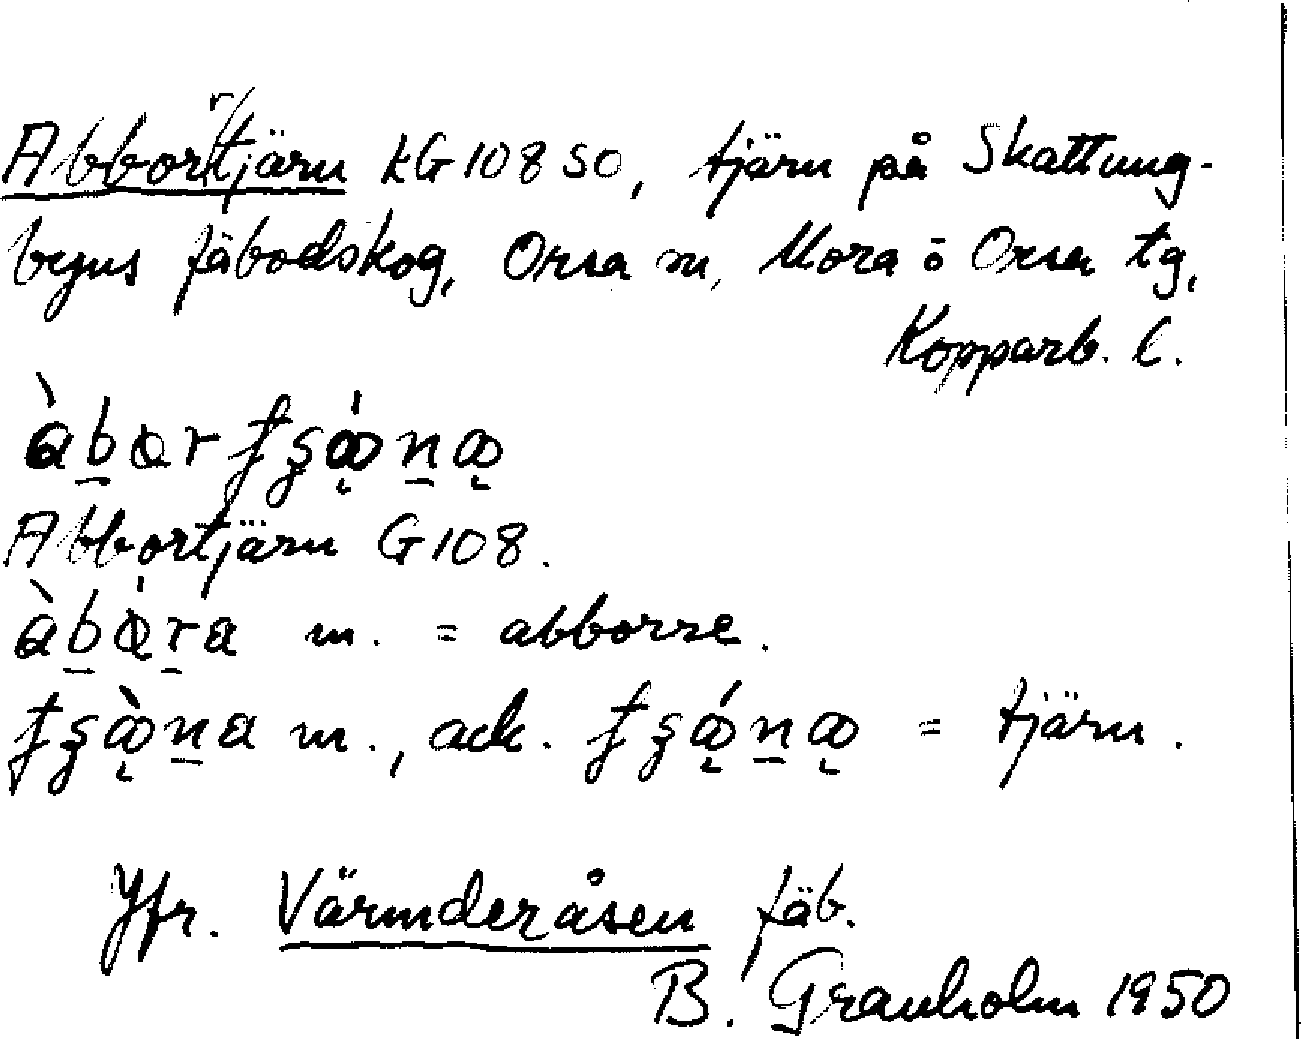 Abborrtjärn kG108 SO, tjärn på Skattung-
byns fäbodskog, Orsa sn, Mora o Orsa tg,
Kopparb. l.
Abbortjärn G108.
m. = abborre.
m., ack. = tjärn.
Jfr. Värmderåsen fäb.
B. Granholm 1950